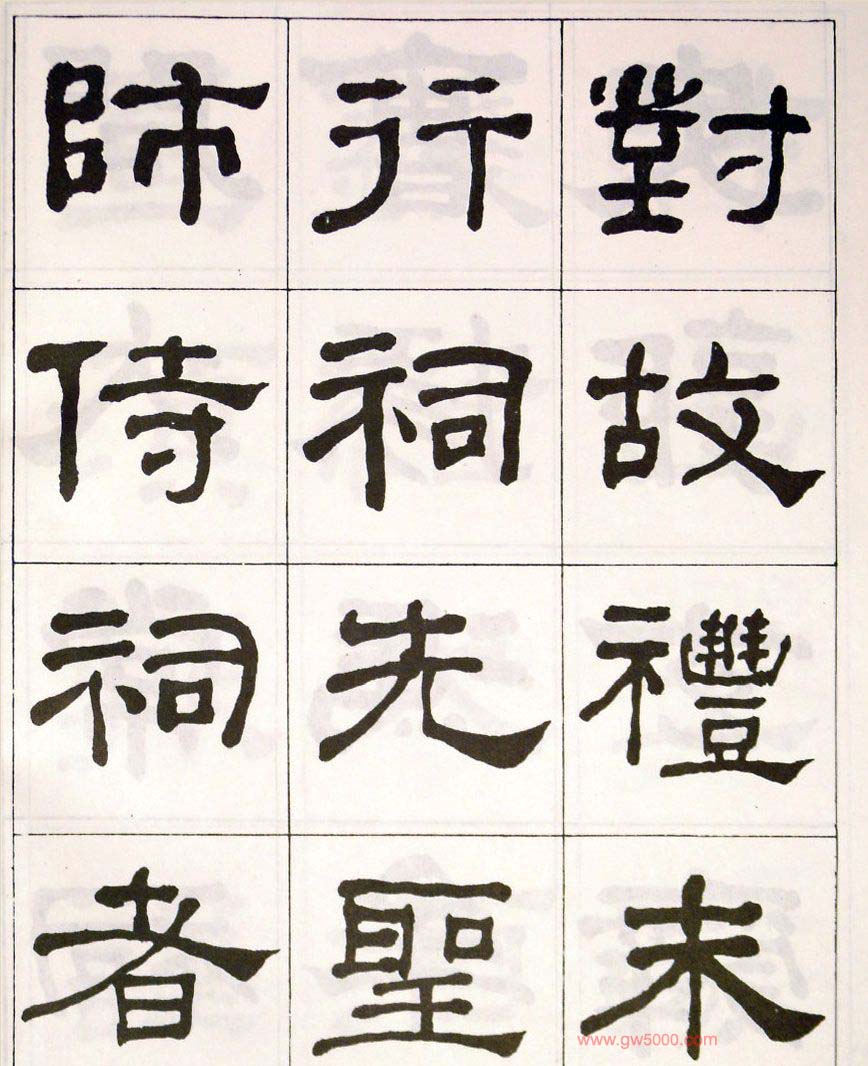 對故禮未
行祠先聖
師侍祠者
www.gw5000.com